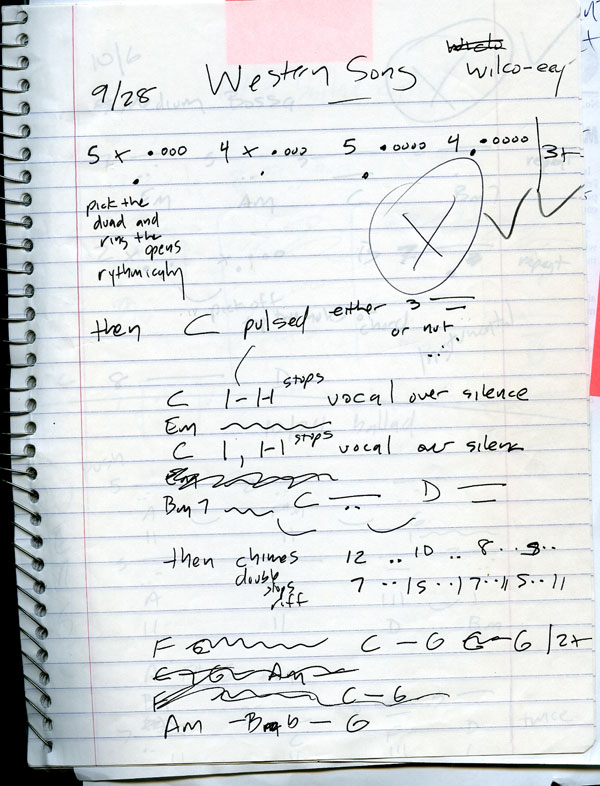 9/28 Western Song Wilco-eey
5 x .ooo 4 x .ooo 5 .oooo 4 .oooo 3x
pick the
duad and
ring the
opens
rythmically
X
then C pulsed either 3
or not
C 1-1-1 stops vocal over silence
Em
C 1, 1-1 stops vocal over silence
Bm7 C D
then chimes 12 .. 10 .. 8 .. 8..
double
stops
riff
7 .. 15 .. 17 .. 15 .. 11
F C - G G 2x
E G Am
F C - G
Am - Bmb - G